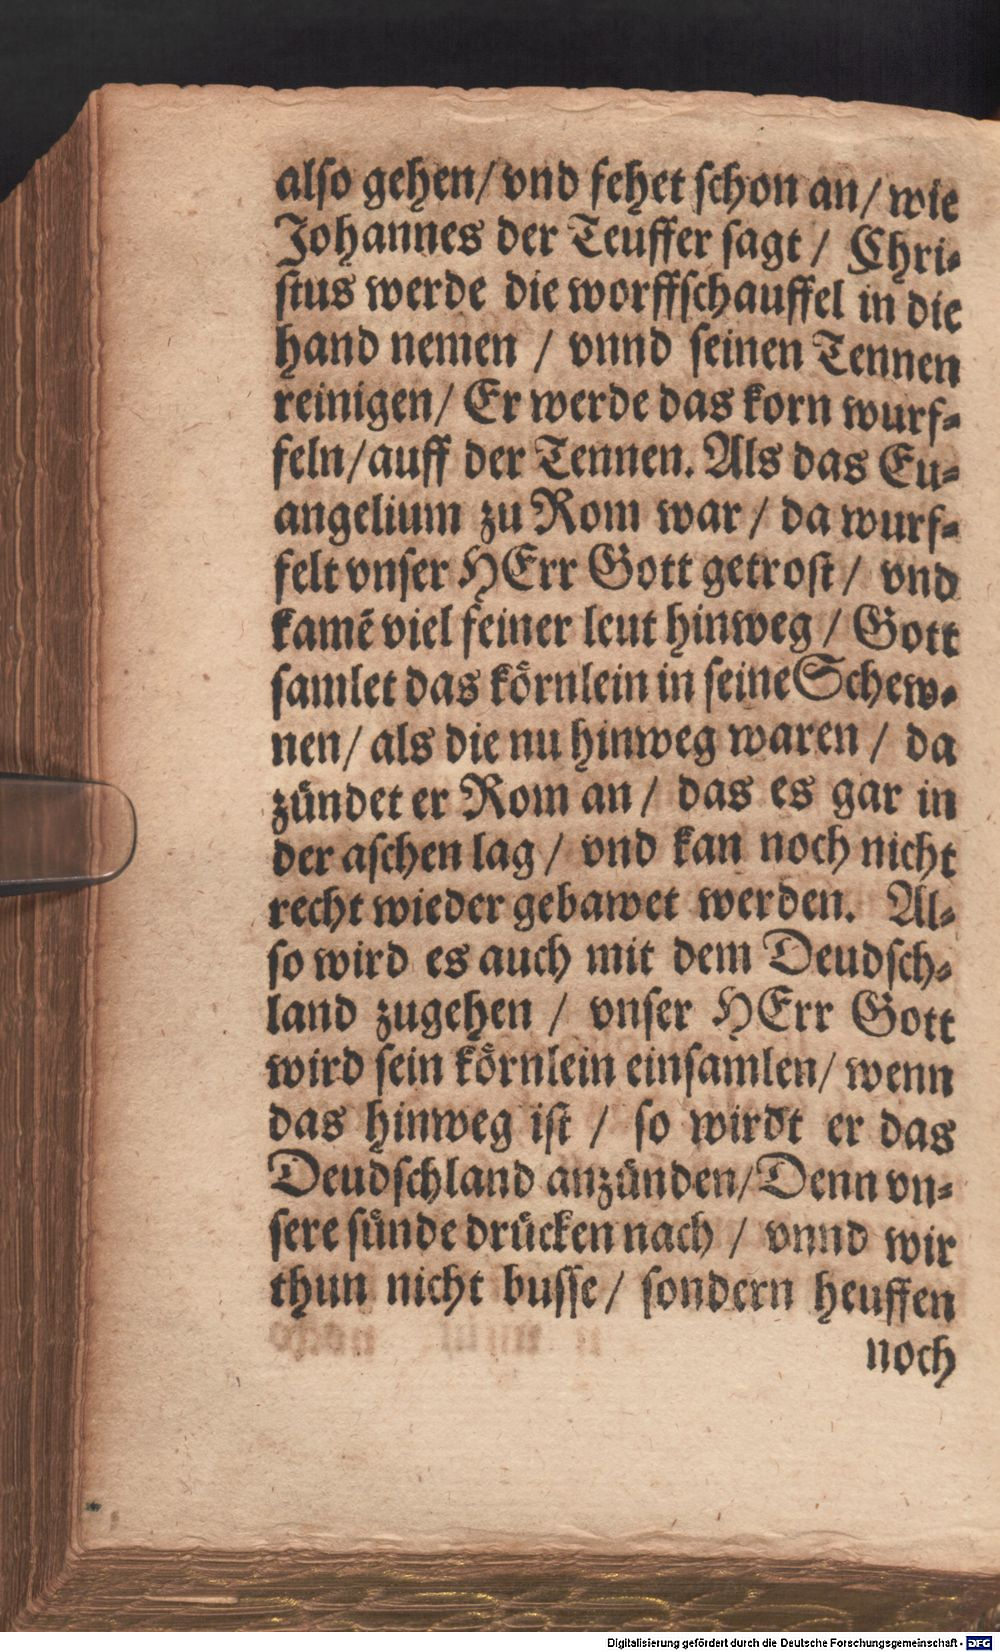 also gehen/ vnd fehet schon an/ wie
Johannes der Teuffer sagt / Chri-
stus werde die worffschauffel in die
hand nemen / vnnd seinen Tennen
reinigen/ Er werde das korn wurf-
feln/auff der Tennen. Als das Eu-
angelium zu Rom war / da wurf-
felt vnser HErr Gott getrost / vnd
kamē viel feiner leut hinweg / Gott
samlet das koͤrnlein in seine Schew-
nen/ als die nu hinweg waren / da
zuͤndet er Rom an / das es gar in
der aschen lag / vnd kan noch nicht
recht wieder gebawet werden. Al-
so wird es auch mit dem Deudsch-
land zugehen / vnser HErr Gott
wird sein koͤrnlein einsamlen/ wenn
das hinweg ist / so wirdt er das
Deudschland anzuͤnden/ Denn vn-
sere suͤnde druͤcken nach / vnnd wir
thun nicht busse/ sondern heuffen
noch
Digitalisierung gefördert durch die Deutsche Forschungsgemeinschaft - DFG